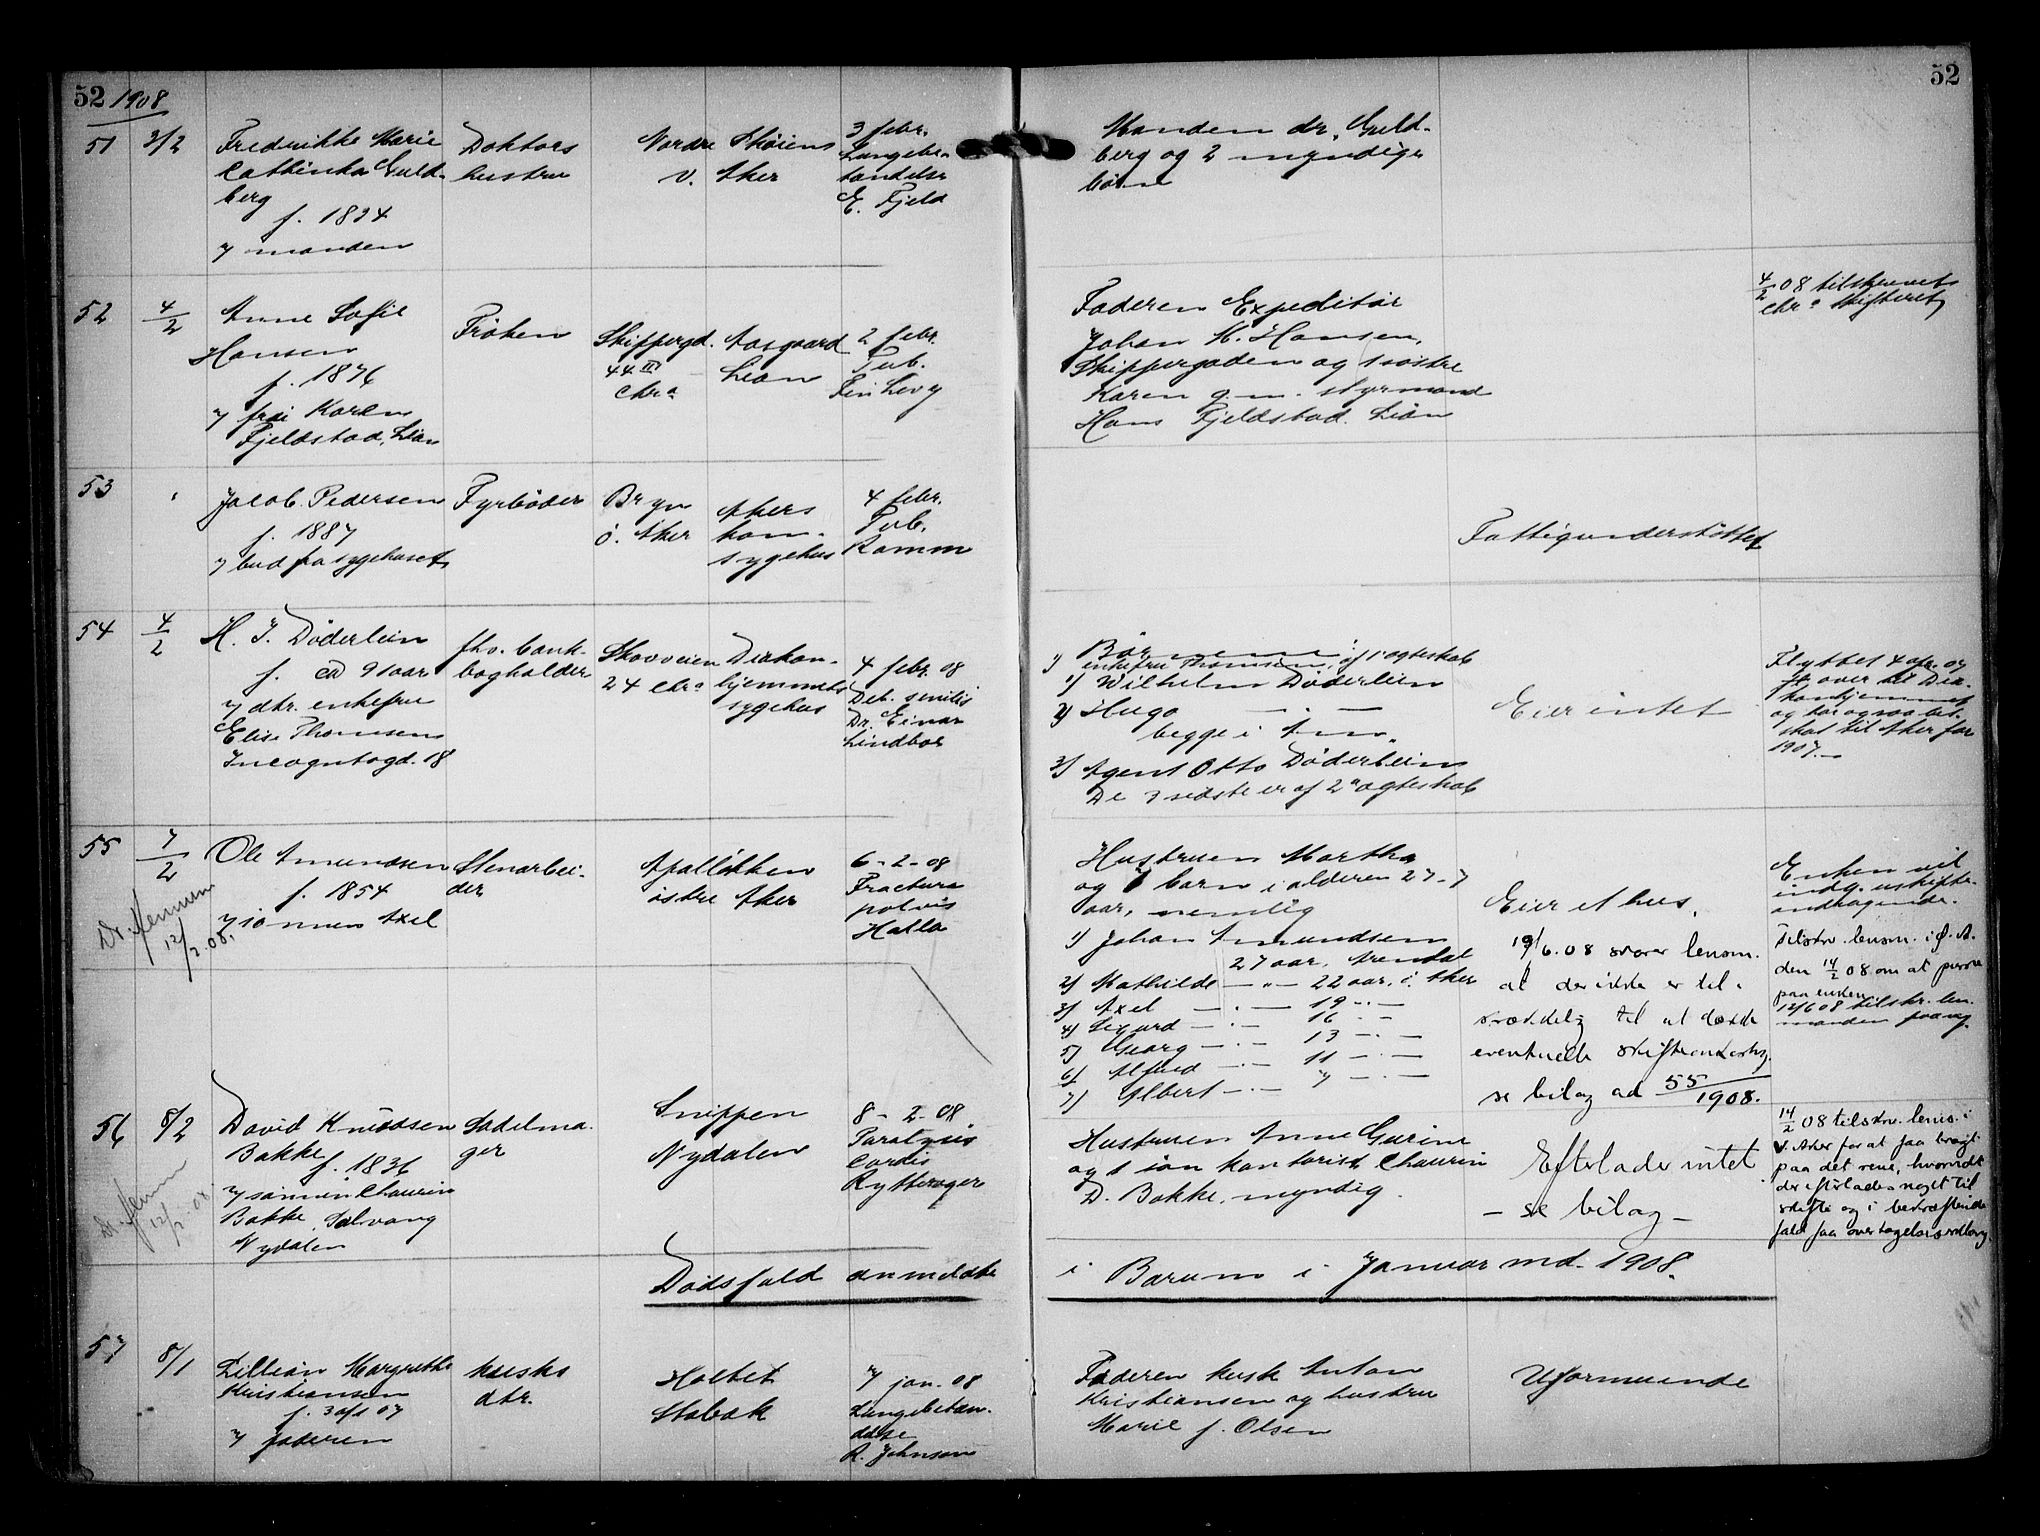 52 1908
52
51
3/2
Fredrikke Marie
Cathinka Guld-
berg
f. 1834
v/ manden
Doktors
hustru
Nordre Skøiens
v. Aker
3 febr.
Lungebe-
tændelse
E. Fjeld
Manden dr. Guld-
berg og 2 myndige
børn
52
4/2
Anne Sofie
Hansen
f. 1876
v/ frøi Karen
Fjeldstad, Lian
Frøken
Skippergd.
44 III
Chra
Aasgaard
Lian
2 febr.
Tub.
Levy
Faderen Expeditør
Johan M. Hansen,
Skippergaden og 1 søstre
Karen g.m. styrmand
Hans Fjeldstad. Lian
4/2 08 tilskrevet
Chra skifteret
53
Jacob Pedersen
f. 1887
v/ bud fra sygehuset
Fyrbøder
Bryn
ø. Aker
Akers
kom-
sygehus
4 febr.
Tub.
Ramm
Fattigunderstøttet
54
4/2
H. J. Døderlein
f. ca 91 aar
v/ dtr. enkefru
Elise Thomsen
Incognitogd. 18
fhv. bank-
bogholder
Skovveien
24 Chra
Diakon-
hjemmets
sygehus
4 febr. 08
Deb. senilis
Dr. Einar
Lindboe
Børnene:
1) enkefru Thomsen, af 1 ægteskab
1) Wilhelm Døderlein
2) Hugo — " —
begge i Am.
3) Agent Otto Døderlein
De 3 sidste er af 2et ægteskab
Eier intet
Flyttet 4 apr. 07
over til Dia-
konhjemmet
og har ogsaa bet.
skat til Aker for
1907.—
55
7/2
Dr.
12/2 08.
Ole Amundsen
f. 1854
v/ sønnen Axel
Stenarbei-
der
Apalløkken
østre Aker
6-2-08
Fractura
pelvis
Halla
Hustruen Martha
og 7 barn i alderen 27-7
aar, nemlig
1) Johan Amundsen
27 aar, Arendal
2) Mathilde — " — 22 aar, i Aker
3) Axel — " — 19 — " —
4) Sigurd — " — 16 " —
5) Georg — " — 13 — " —
6) Alfred — " — 11 — " —
7) Albert — " — 7 — " —
Eier et hus.
19/6.08 svarer lensm.
at der ikke er til-
strækkelig til at dække
eventuelle skifteomkostn.
se bilag ad 55/1908.
Enken vil
indg. uskifte-
andragende.
Tilskr. lensm. i Ø. A.
den 14/2 08 om at purre
paa enken
12/6 08 tilskr. len-
manden paany.
56
8/2
Dr.
12/2 08.
David Knudsen
Bakke f. 1836
v/ sønnen Chaurin
Bakke, Solvang
Nydalen
Sadelma-
ger
Snippen
Nydalen
8-2-08
Paralysis
cordis
Rytterager
Hustruen Anne Gurine
og 1 søn kontorist Chaurin
D. Bakke, myndig.
Efterlader intet
— se bilag —
14/2 08 tilskr. lens. i
V. Aker for at faa bragt
paa det rene, hvorvidt
der efterlades noget til
skifte og i bekræftende
fald faa overtagelseserklæring.
Dødsfald anmeldte i Bærum i Januar md. 1908.
57
8/1
Lillian Margrethe
Kristiansen
f. 07
v/ faderen
kusks
dtr.
Holtet
Stabæk
7 jan. 08
Lungebetæn-
delse
R. Johnson
Faderen kusk Anton
Kristiansen og hustru
Marie f. Olsen
Uformuende